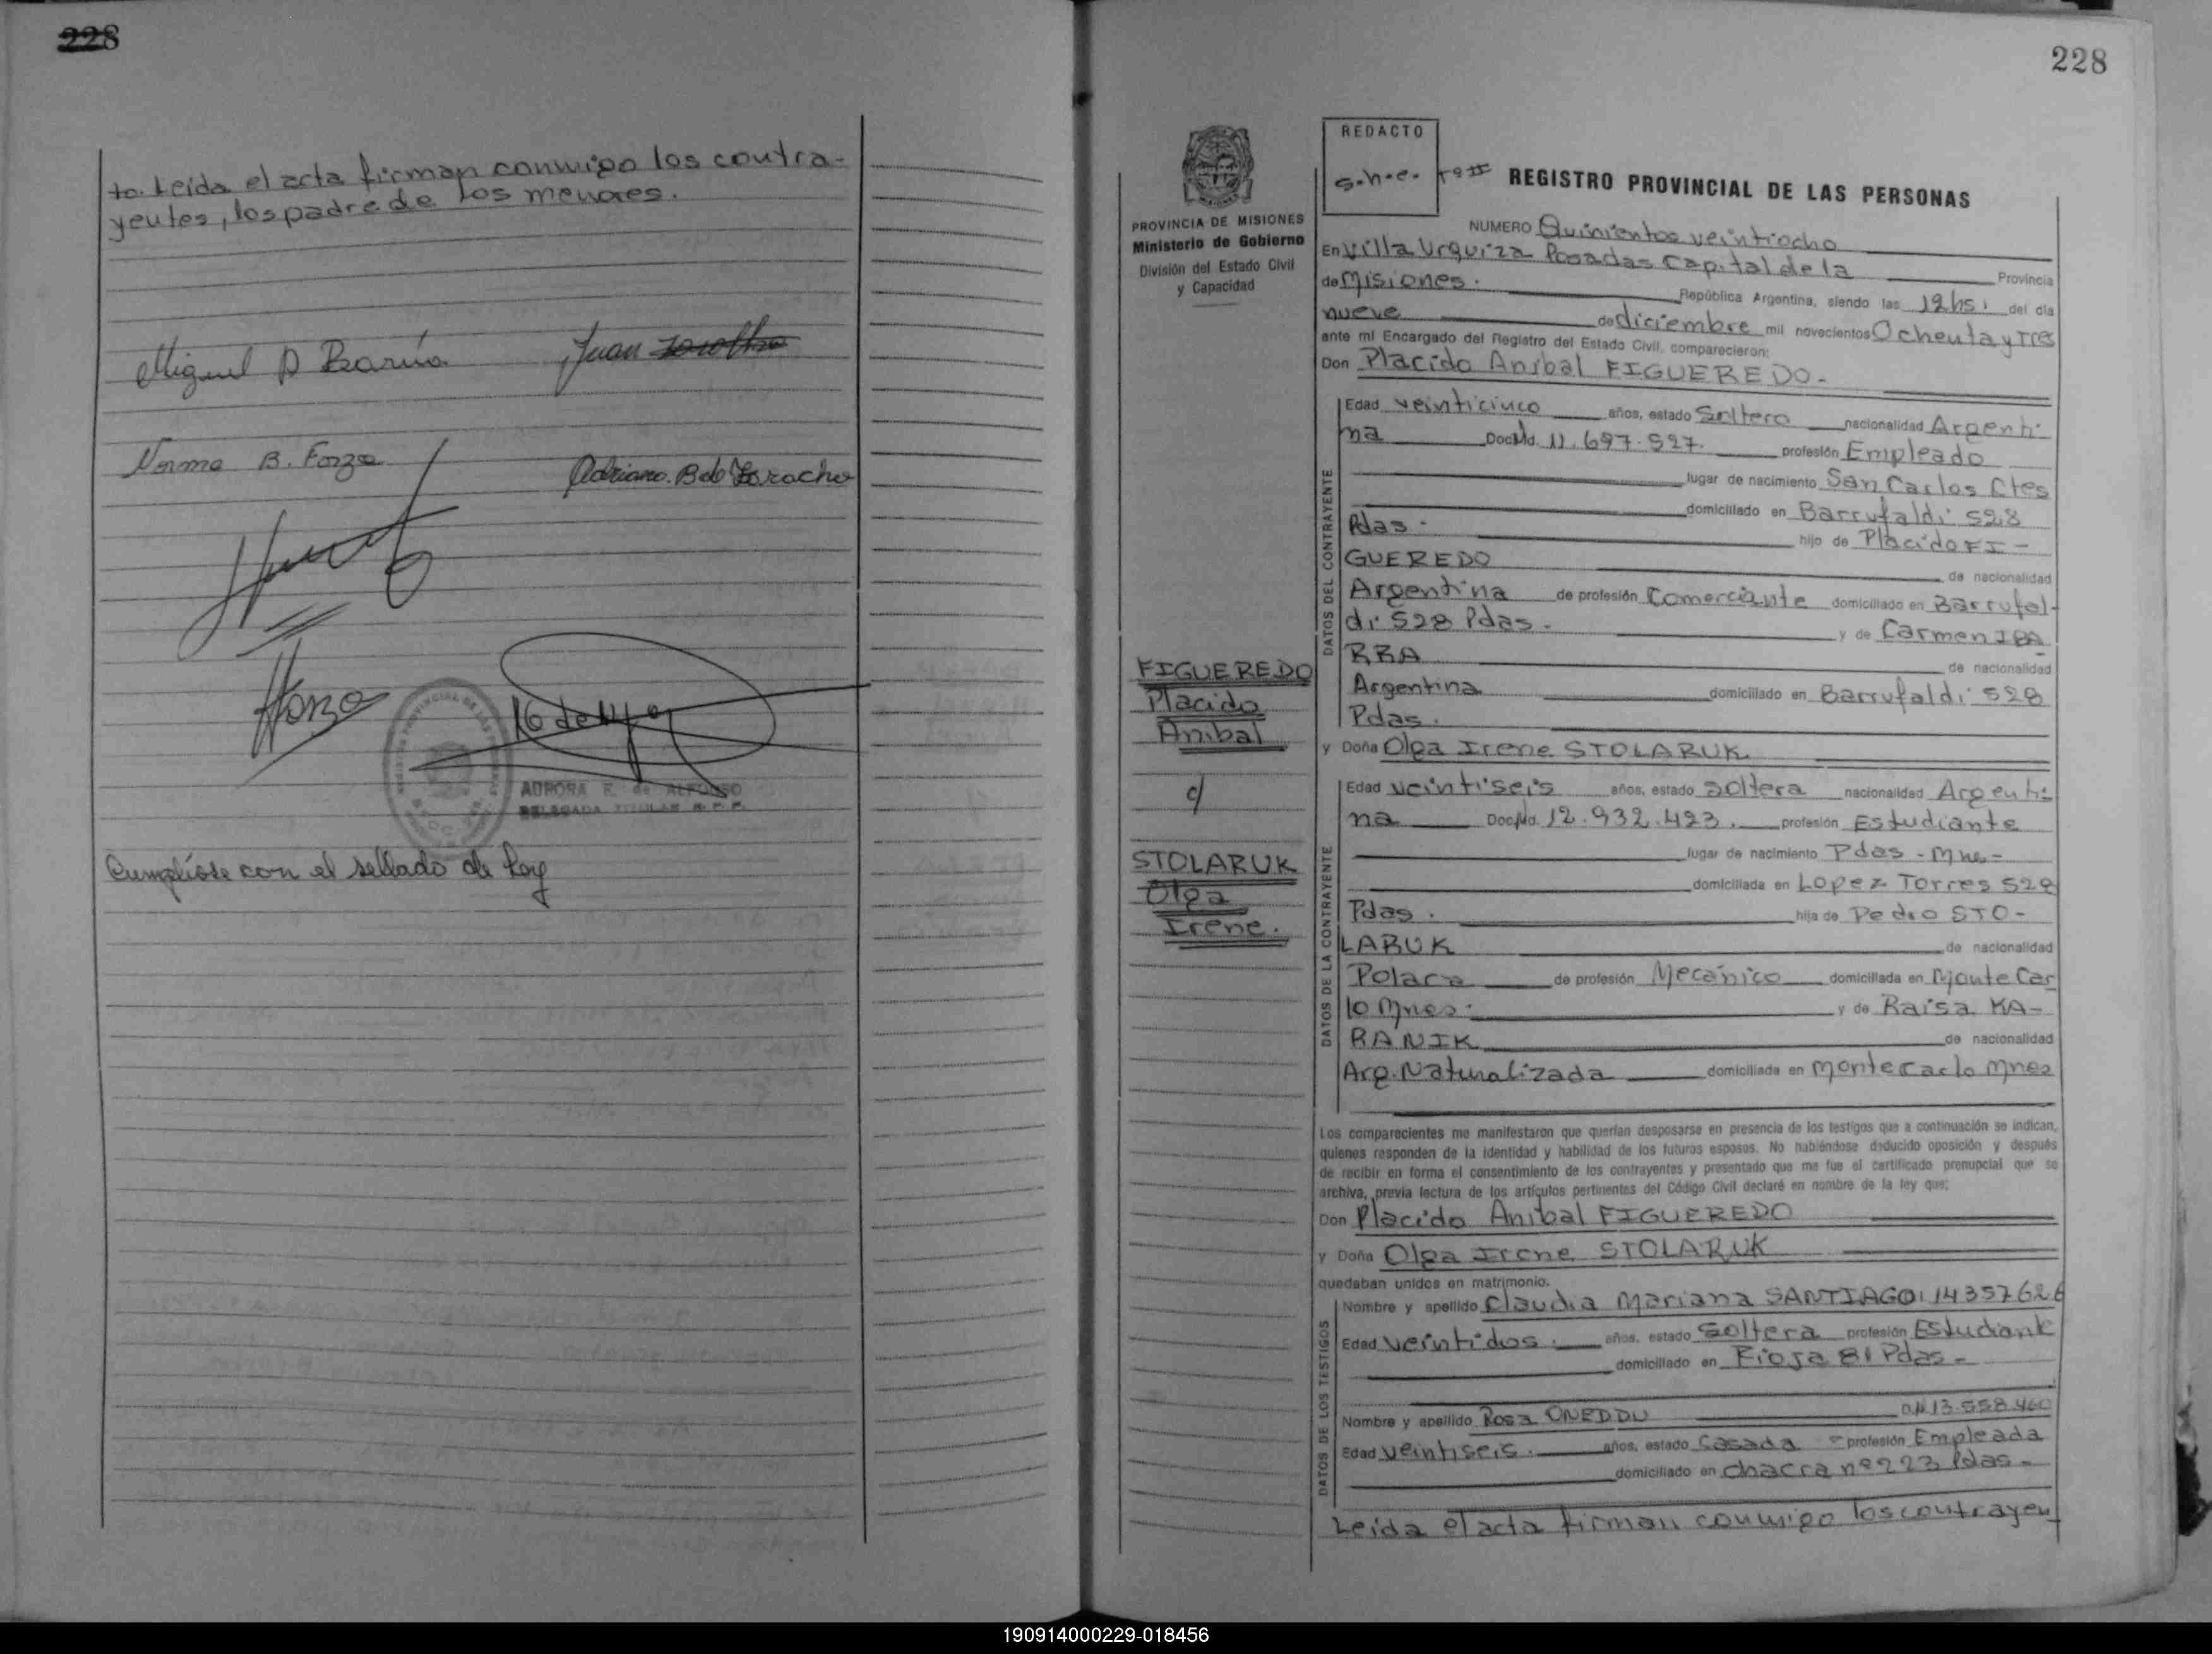 228
to. Leída el acta firman conmigo los contra-
yentes, los padre de los menores.
Miguel
Juan
Norma B.
16 de
AURORA E. de ALFONSO
DELEGADA TITULAR R.P.P.
Cumplióse con el sellado de Ley
228
REDACTO
s.h.e.
REGISTRO PROVINCIAL DE LAS PERSONAS
PROVINCIA DE MISIONES
Ministerio de Gobierno
División del Estado Civil
y Capacidad
NUMERO Quinientos veintiocho
En Villa Urquiza Posadas Capital de la Provincia
de Misiones. República Argentina, siendo las 12hs. del día
nueve de diciembre mil novecientos Ochenta y Tres
ante mí Encargado del Registro del Estado Civil, comparecieron:
Don Placido Anibal FIGUEREDO.-
DATOS DEL CONTRAYENTE
Edad veinticinco años, estado Soltero nacionalidad Argenti-
na Doc. 11.697.527. profesión Empleado
lugar de nacimiento San Carlos Ctes
domiciliado en Barrufaldi 528
Pdas. hijo de Placido FI-
GUEREDO de nacionalidad
Argentina de profesión Comerciante domiciliado en Barrufal-
di 528 Pdas. y de Carmen IBA
RRA de nacionalidad
Argentina domiciliado en Barrufaldi 528
Pdas.
FIGUEREDO
Placido
Anibal
c/
STOLARUK
Olga
Irene.
y Doña Olga Irene STOLARUK
DATOS DE LA CONTRAYENTE
Edad veintiseis años, estado Soltera nacionalidad Argenti-
na Doc. 12.932.423. profesión Estudiante
lugar de nacimiento Pdas - Mnes-
domiciliada en Lopez Torres 528
Pdas. hija de Pedro STO-
LARUK de nacionalidad
Polaca de profesión Mecánico domiciliada en Monte Car
lo Mnes. y de Raisa KA-
RANIK de nacionalidad
Arg. Naturalizada domiciliada en Montecarlo Mnes
Los comparecientes me manifestaron que querían desposarse en presencia de los testigos que a continuación se indican,
quienes responden de la identidad y habilidad de los futuros esposos. No habiéndose deducido oposición y después
de recibir en forma el consentimiento de los contrayentes y presentado que me fue el certificado prenupcial que se
archiva, previa lectura de los artículos pertinentes del Código Civil declaré en nombre de la ley que:
Don Placido Anibal FIGUEREDO
y Doña Olga Irene STOLARUK
quedaban unidos en matrimonio.
DATOS DE LOS TESTIGOS
Nombre y apellido Claudia Mariana SANTIAGO: 14357626
Edad veintidos. años, estado Soltera profesión Estudiante
domiciliado en Rioja 81 Pdas-
Nombre y apellido Rosa ONEDDU 13.558.460
Edad veintiseis. años, estado Casada profesión Empleada
domiciliado en chacra nº 223 Pdas-
Leída el acta firman conmigo los contrayen
190914000229-018456